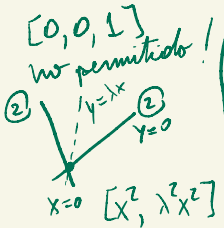 [0,0,1]
no permitido!
② y=λx ②
y=0
x=0 [x², λ²x²]